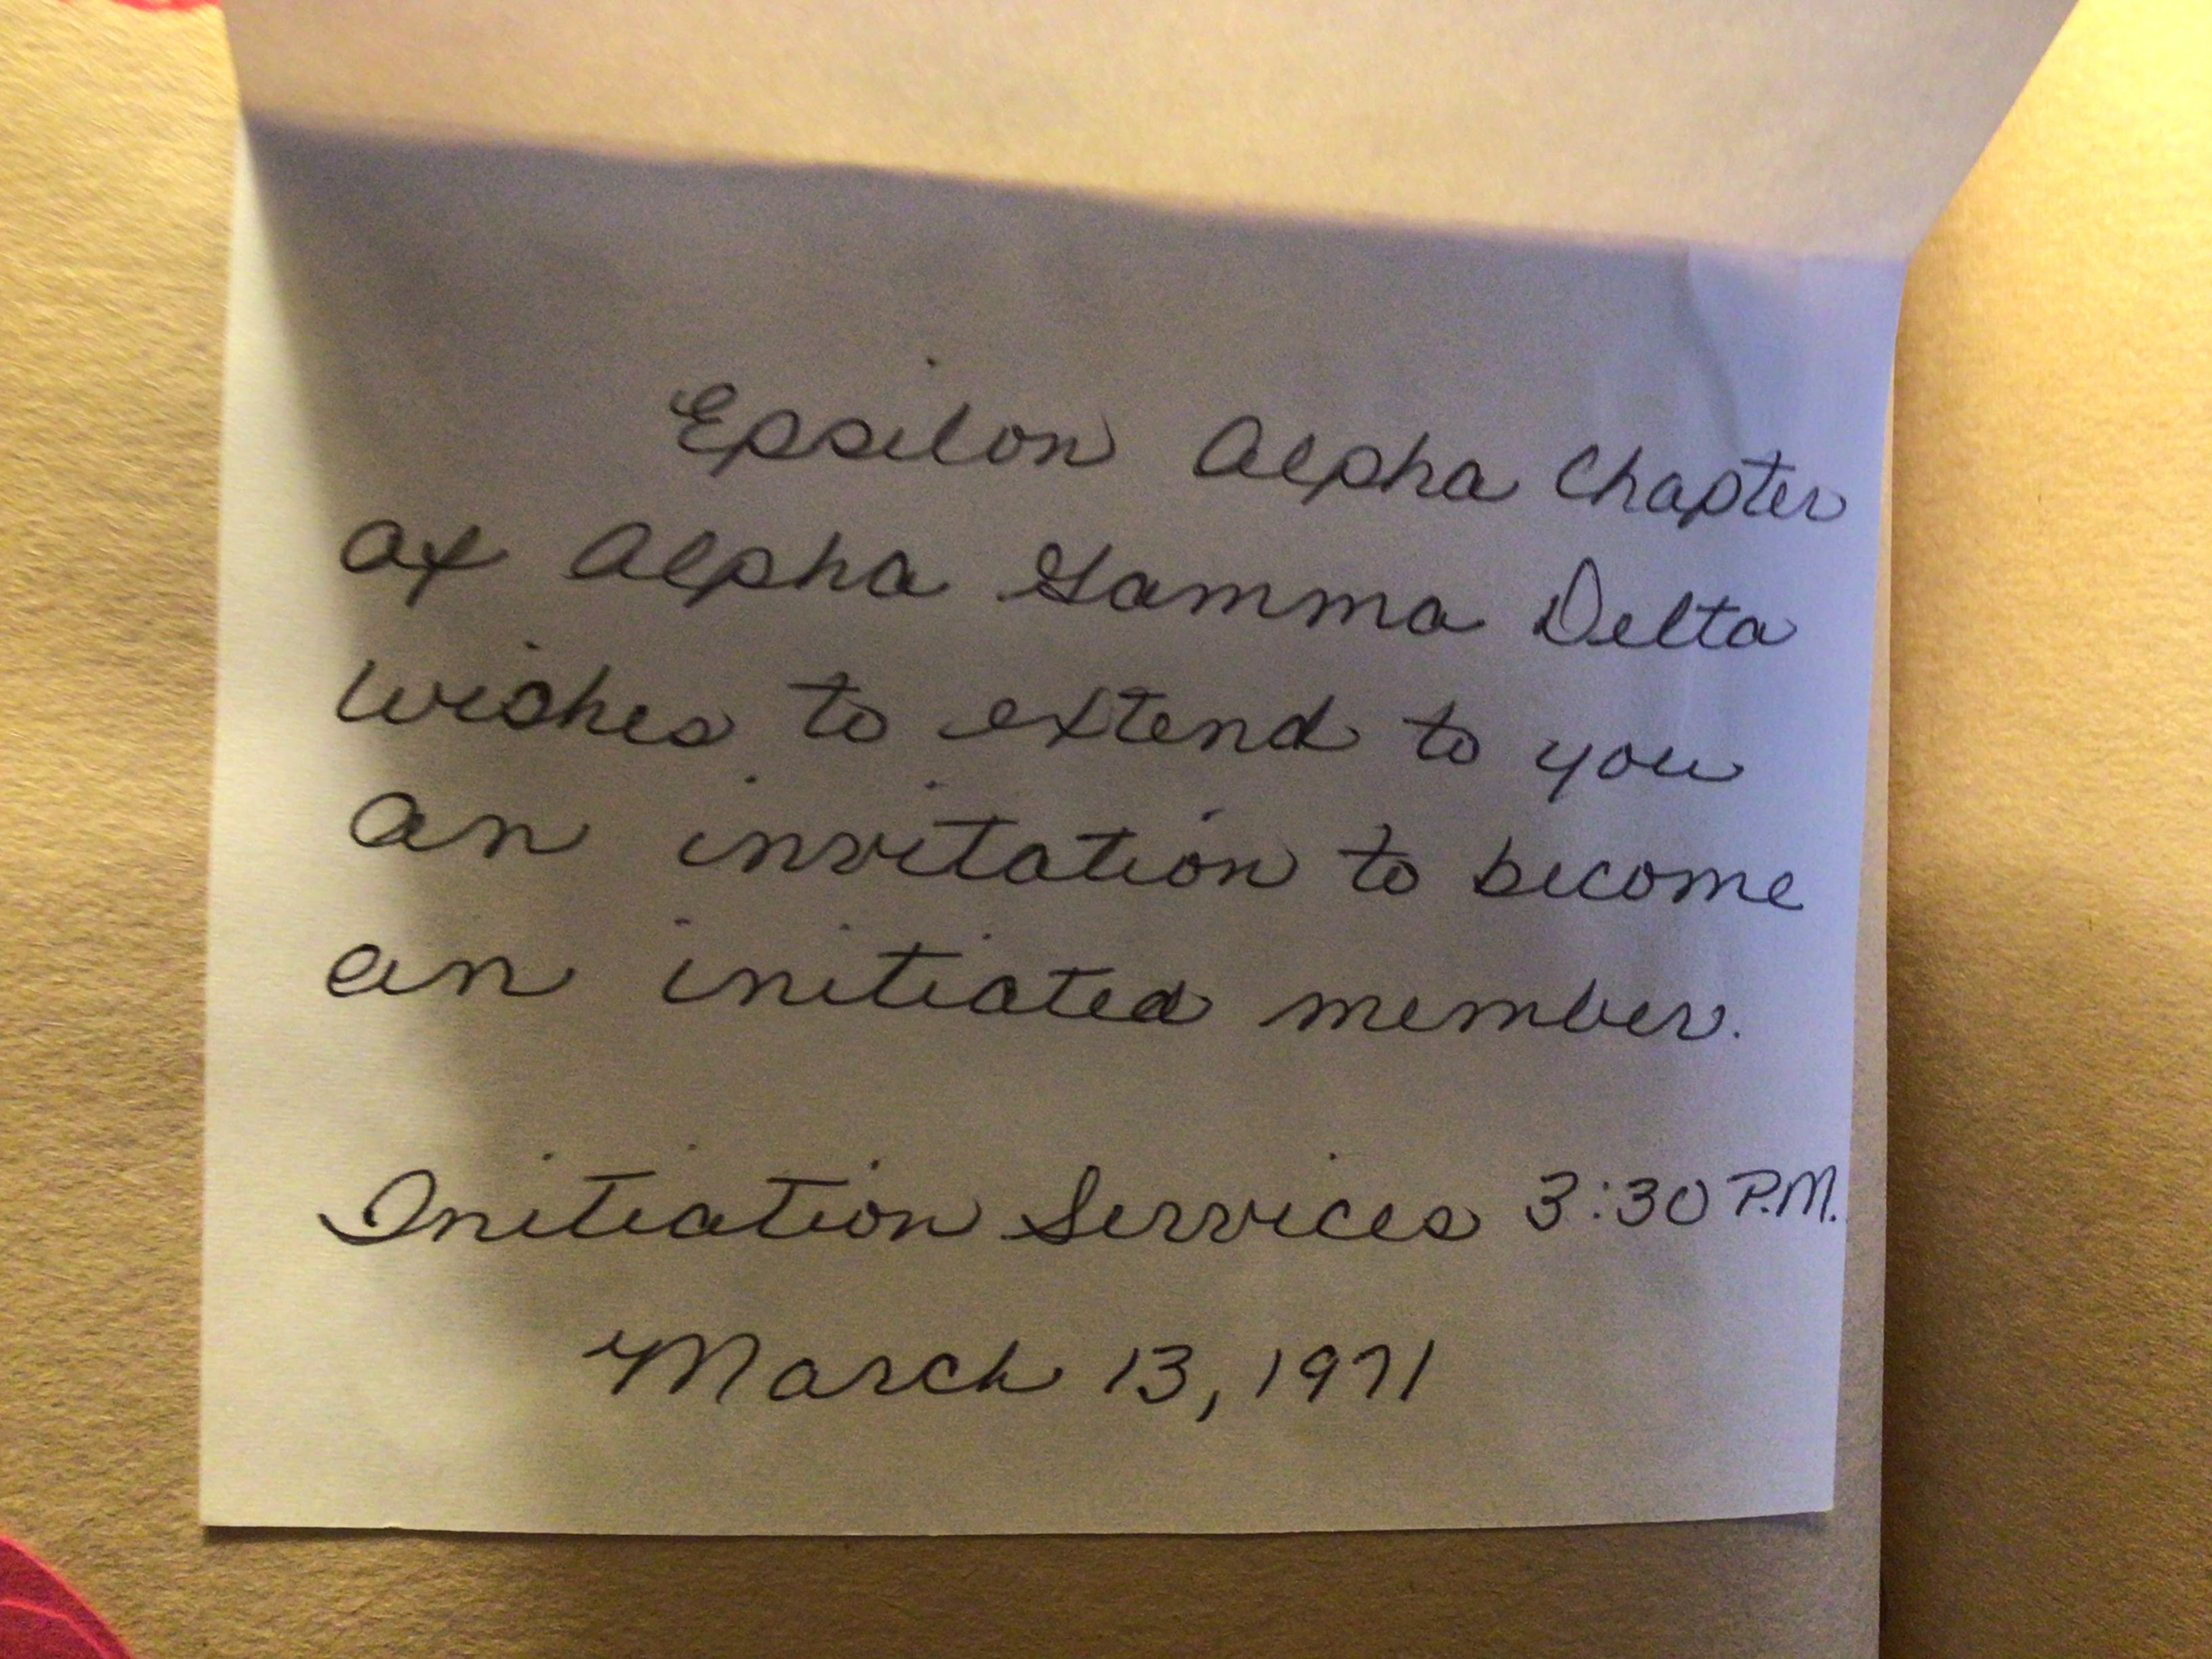 Epsilon Alpha Chapter
of Alpha Gamma Delta
wishes to extend to you
an invitation to become
an initiated member.
Initiation Services 3:30 P.M.
March 13, 1971